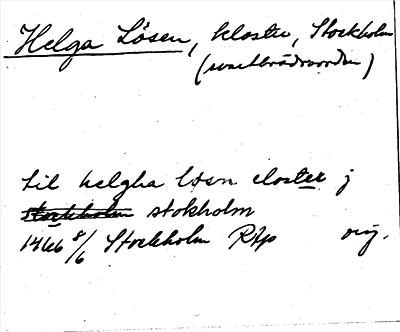 Helga Lösen, kloster, Stockholm
(svartbrödraorden)
til helgha løsn closter j
stockholm stokholm
1466 8/6 Stockholm RAp orig.